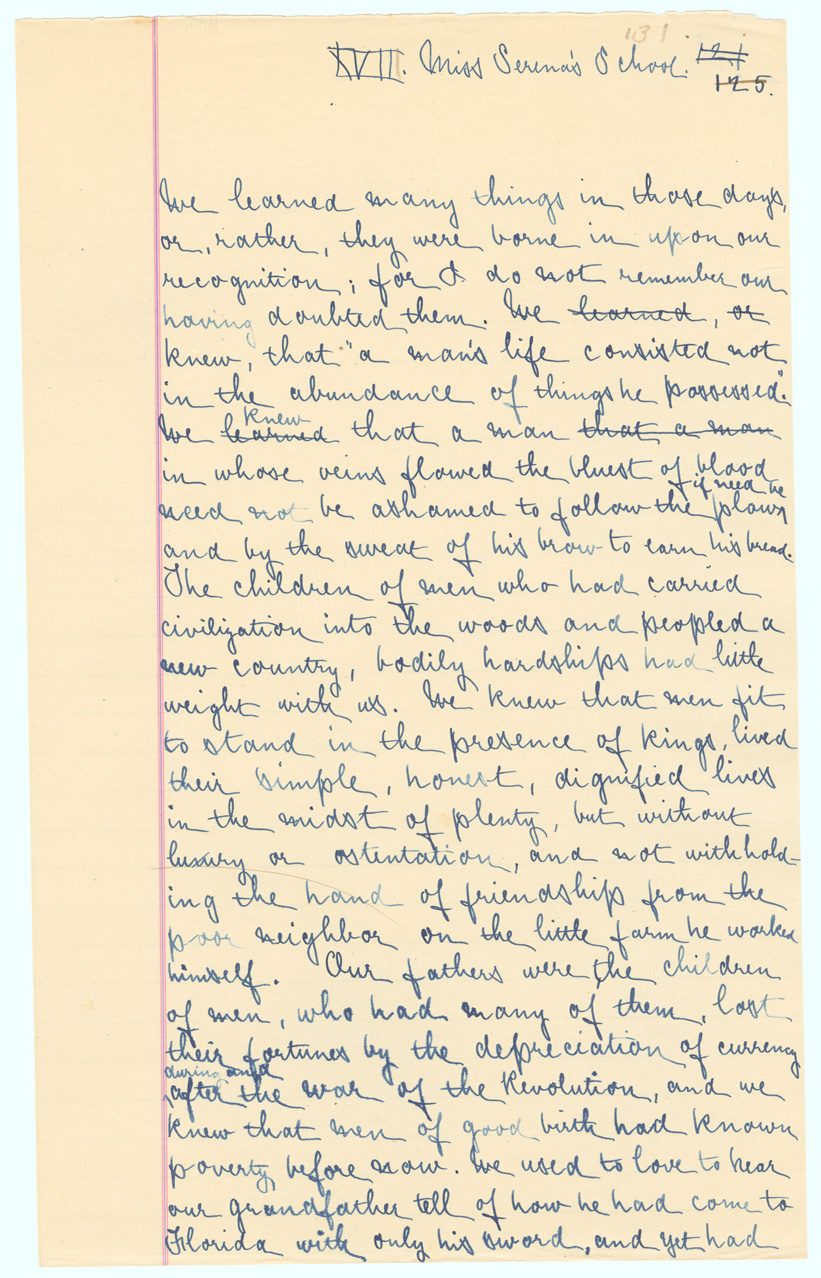 131
XVII. Miss Serena's School. 121
125.
We learned many things in those days,
or, rather, they were borne in upon our
recognition; for I do not remember our
having doubted them. We learned, or
knew, that "a man's life consisted not
in the abundance of things he possessed."
knew
We learned that a man that a man
in whose veins flowed the bluest of blood
if need be
need not be ashamed to follow the plow,
and by the sweat of his brow to earn his bread.
The children of men who had carried
civilization into the woods and peopled a
new country, bodily hardships had little
weight with us. We knew that men fit
to stand in the presence of kings, lived
their simple, honest, dignified lives
in the midst of plenty, but without
luxury or ostentation, and not withhold-
ing the hand of friendship from the
poor neighbor on the little farm he worked
himself. Our fathers were the children
of men, who had many of them, lost
their fortunes by the depreciation of currency
during and
after the war of the Revolution, and we
knew that men of good birth had known
poverty before now. We used to love to hear
our grandfather tell of how he had come to
Florida with only his sword, and yet had